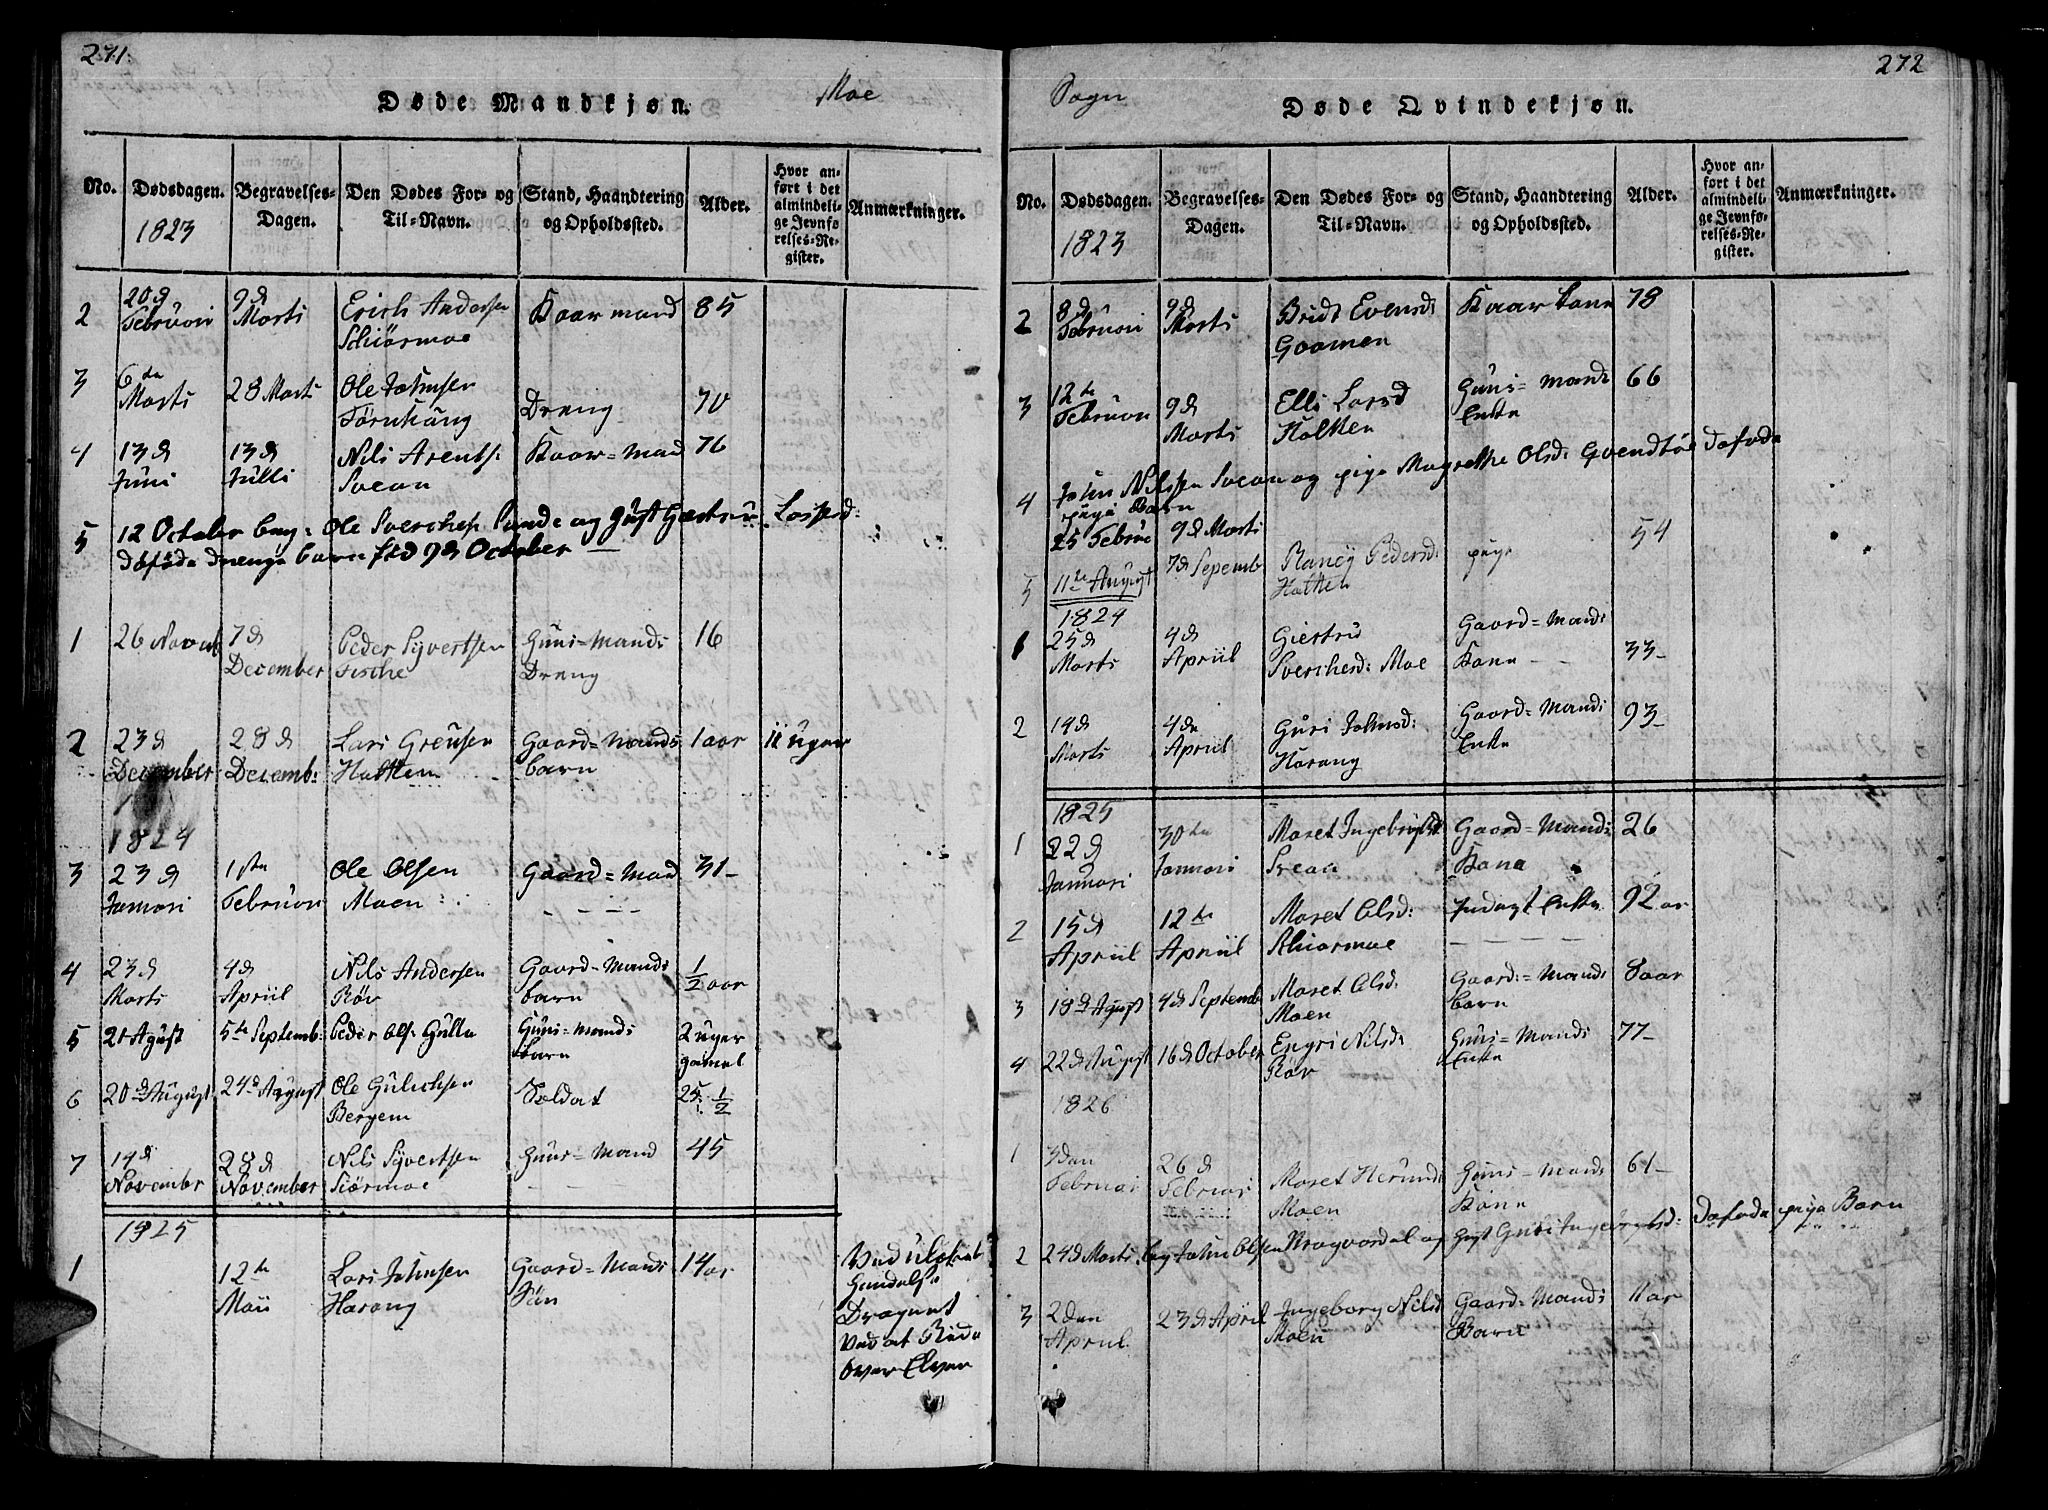 271.
Døde Mandkjøn.
Moe
No.
Dødsdagen.
1823
Begravelses-
Dagen.
Den Dødes For- og
Til-Navn.
Stand, Haandtering
og Opholdssted.
Alder.
Hvor an-
ført i det
almindeli-
ge Jevnfø-
relses-Re-
gister.
Anmærkninger.
2
20d
Februari
9d
Marts
Erich Andersen
Schiørmoe
Kaarmand
85
3
6te
Marts
28 Marts
Ole Johnsen
Dreng
70
4
13d
Juni
13d
Julli
Nils Arents:
Svean
Kaar=Mand
76
5
12 October Ole Sverches: og
Daføde Drenge Barn fød 9d October
1
26
7d
December
Peder Syvertsen
Fische
Huus=Mands
Dreng
16
2
23d
December
28d
Decemb:
Lars
Holthen
Gaard=Mands
barn
1 aar
11 uger
1824
3
23d
Januari
1ste
Februari
Ole Olsen
Moen
Gaard=Mand
31
4
23d
Marts
4d
Apriil
Nils Andersen
Röv
Gaard=Mands
barn
1/2 aar
5
21 Agust
5te Septemb:
Peder Ols: Gulla
Huus=Mands
barn
2 uger
gamel
6
20d August
24d August
Ole
Bergem
Soldat
25 1/2
7
14d
November
28d
November
Nils Syvertsen
Huus=Mand
45
1825
1
12te
Maii
Lars Johnsen
Harang
Gaard=Mands
Sön
14 ar
Ved
Druknet
Ved at Ride
Over Elven
Sogn
Døde Qvindekjøn.
272
No.
Dødsdagen.
1823
Begravelses-
Dagen.
Den Dødes For- og
Til-Navn.
Stand, Haandtering
og Opholdssted.
Alder.
Hvor an-
ført i det
almindeli-
ge Jevnfø-
relses-Re-
gister.
Anmærkninger.
2
8d
Februari
9d
Marts
Bridt Evensd:
Goamen
Kaar Kone
78
3
12te
Februari
9d
Marts
Elli Larsd
Holthen
Huus=Mands
Enke
66
4
John Nilssen Svean og pige Magrethe Olsd: Dafode
pige Barn
25 Februa
9d Marts
5
11te August
7d Sepemb
Pedersd:
Holthen
pige
54
1824
1
25d
Marts
4d
Apriil
Giertru
Sverchesd: Moe
Gaard=Mands
Kone
33
2
14d
Marts
4de
Apriil
Guri Johnsd:
Harang
Gaard=Mands
Enke
93
1825
1
22d
Januari
30te
Januari
Maret Ingebrigtsd:
Svean
Gaard=Mands
Kone
26
2
15d
Apriil
12te
Apriil
Maret Olsd:
Enke
92 ar
3
18d Agust
4d Septemb
Maret Olsd:
Moen
Gaard=Mands
barn
8 aar
4
22d August
16d October
Engri Nilsd:
Röv
Huus=Mands
Enke
77
1826
1
3den
Februai
26d
Februai
Maret
Moen
Huus=Mands
Kone
61
2
24d Marts John Olsen og Guri Dafode pige Barn
3
2den
Apriil
23d Apriil
Ingeborg Nilsd
Moen
Gaard=Mands
Barn
11 ar